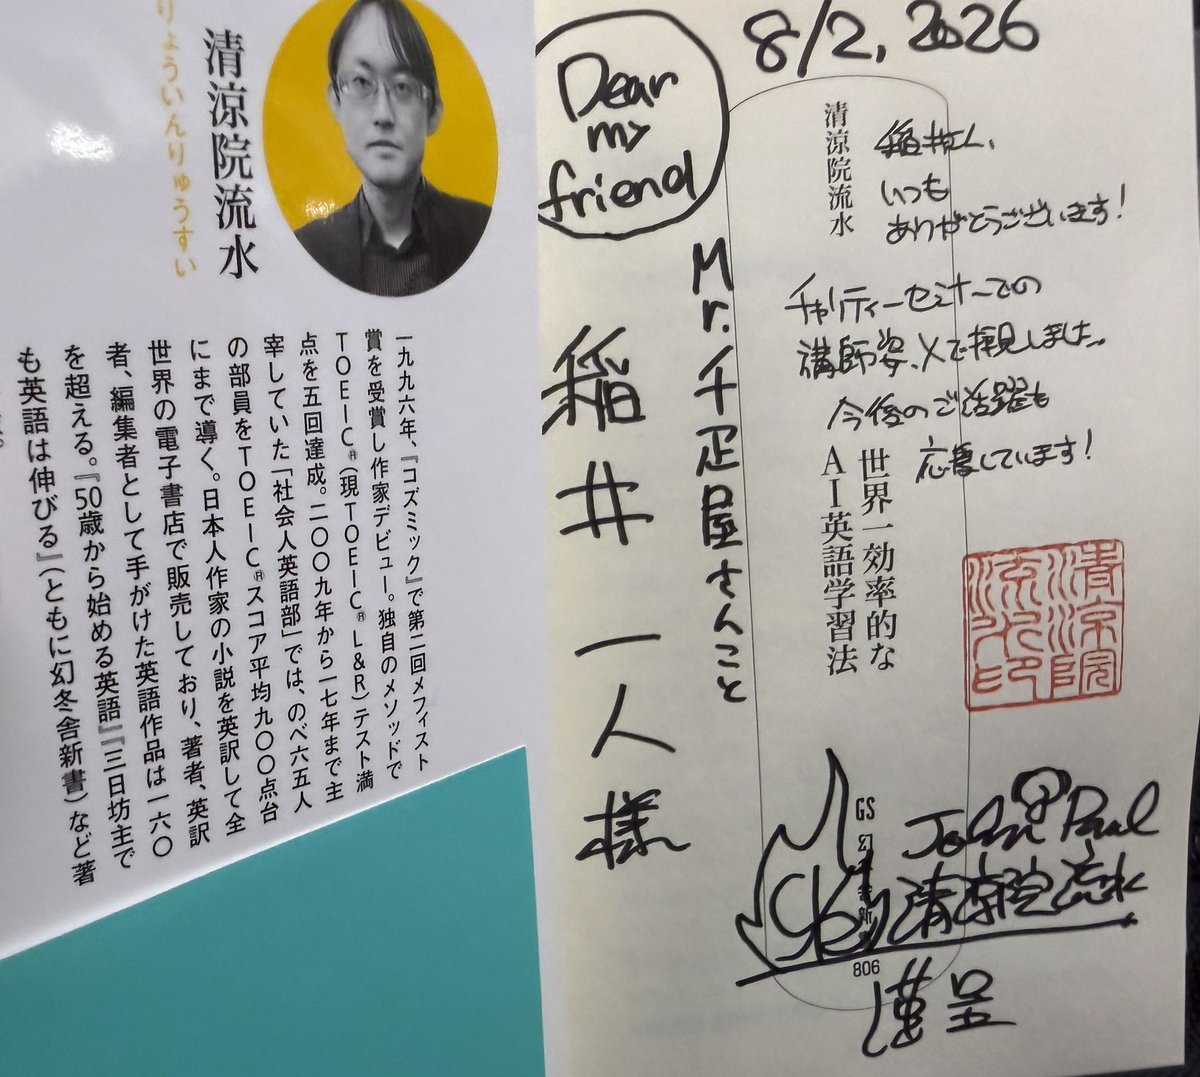 清涼院流水
りょういんりゅうすい
一九九六年、『コズミック』で第二回メフィスト
賞を受賞し作家デビュー。独自のメソッドで
TOEIC®(現TOEIC® L&R)テスト満
点を五回達成。二〇〇九年から一七年まで主
宰していた「社会人英語部」では、のべ六五人
の部員をTOEIC®スコア平均九〇〇点台
にまで導く。日本人作家の小説を英訳して全
世界の電子書店で販売しており、著者、英訳
者、編集者として手がけた英語作品は一六〇
を超える。『50歳から始める英語』『三日坊主で
も英語は伸びる』(ともに幻冬舎新書)など著
8/2, 2026
Dear
my
friend
Mr.千疋屋さんこと
稲井一人様
清涼院流水
稲井さん、
いつも
ありがとうございます!
チャリティーセミナーでの
講師姿、Xで拝見しました。
今後のご活躍も
応援しています!
世界一効率的な
AI英語学習法
清涼院
流水印
GS
幻冬舎新書
806
John Paul
清涼院流水
謹呈